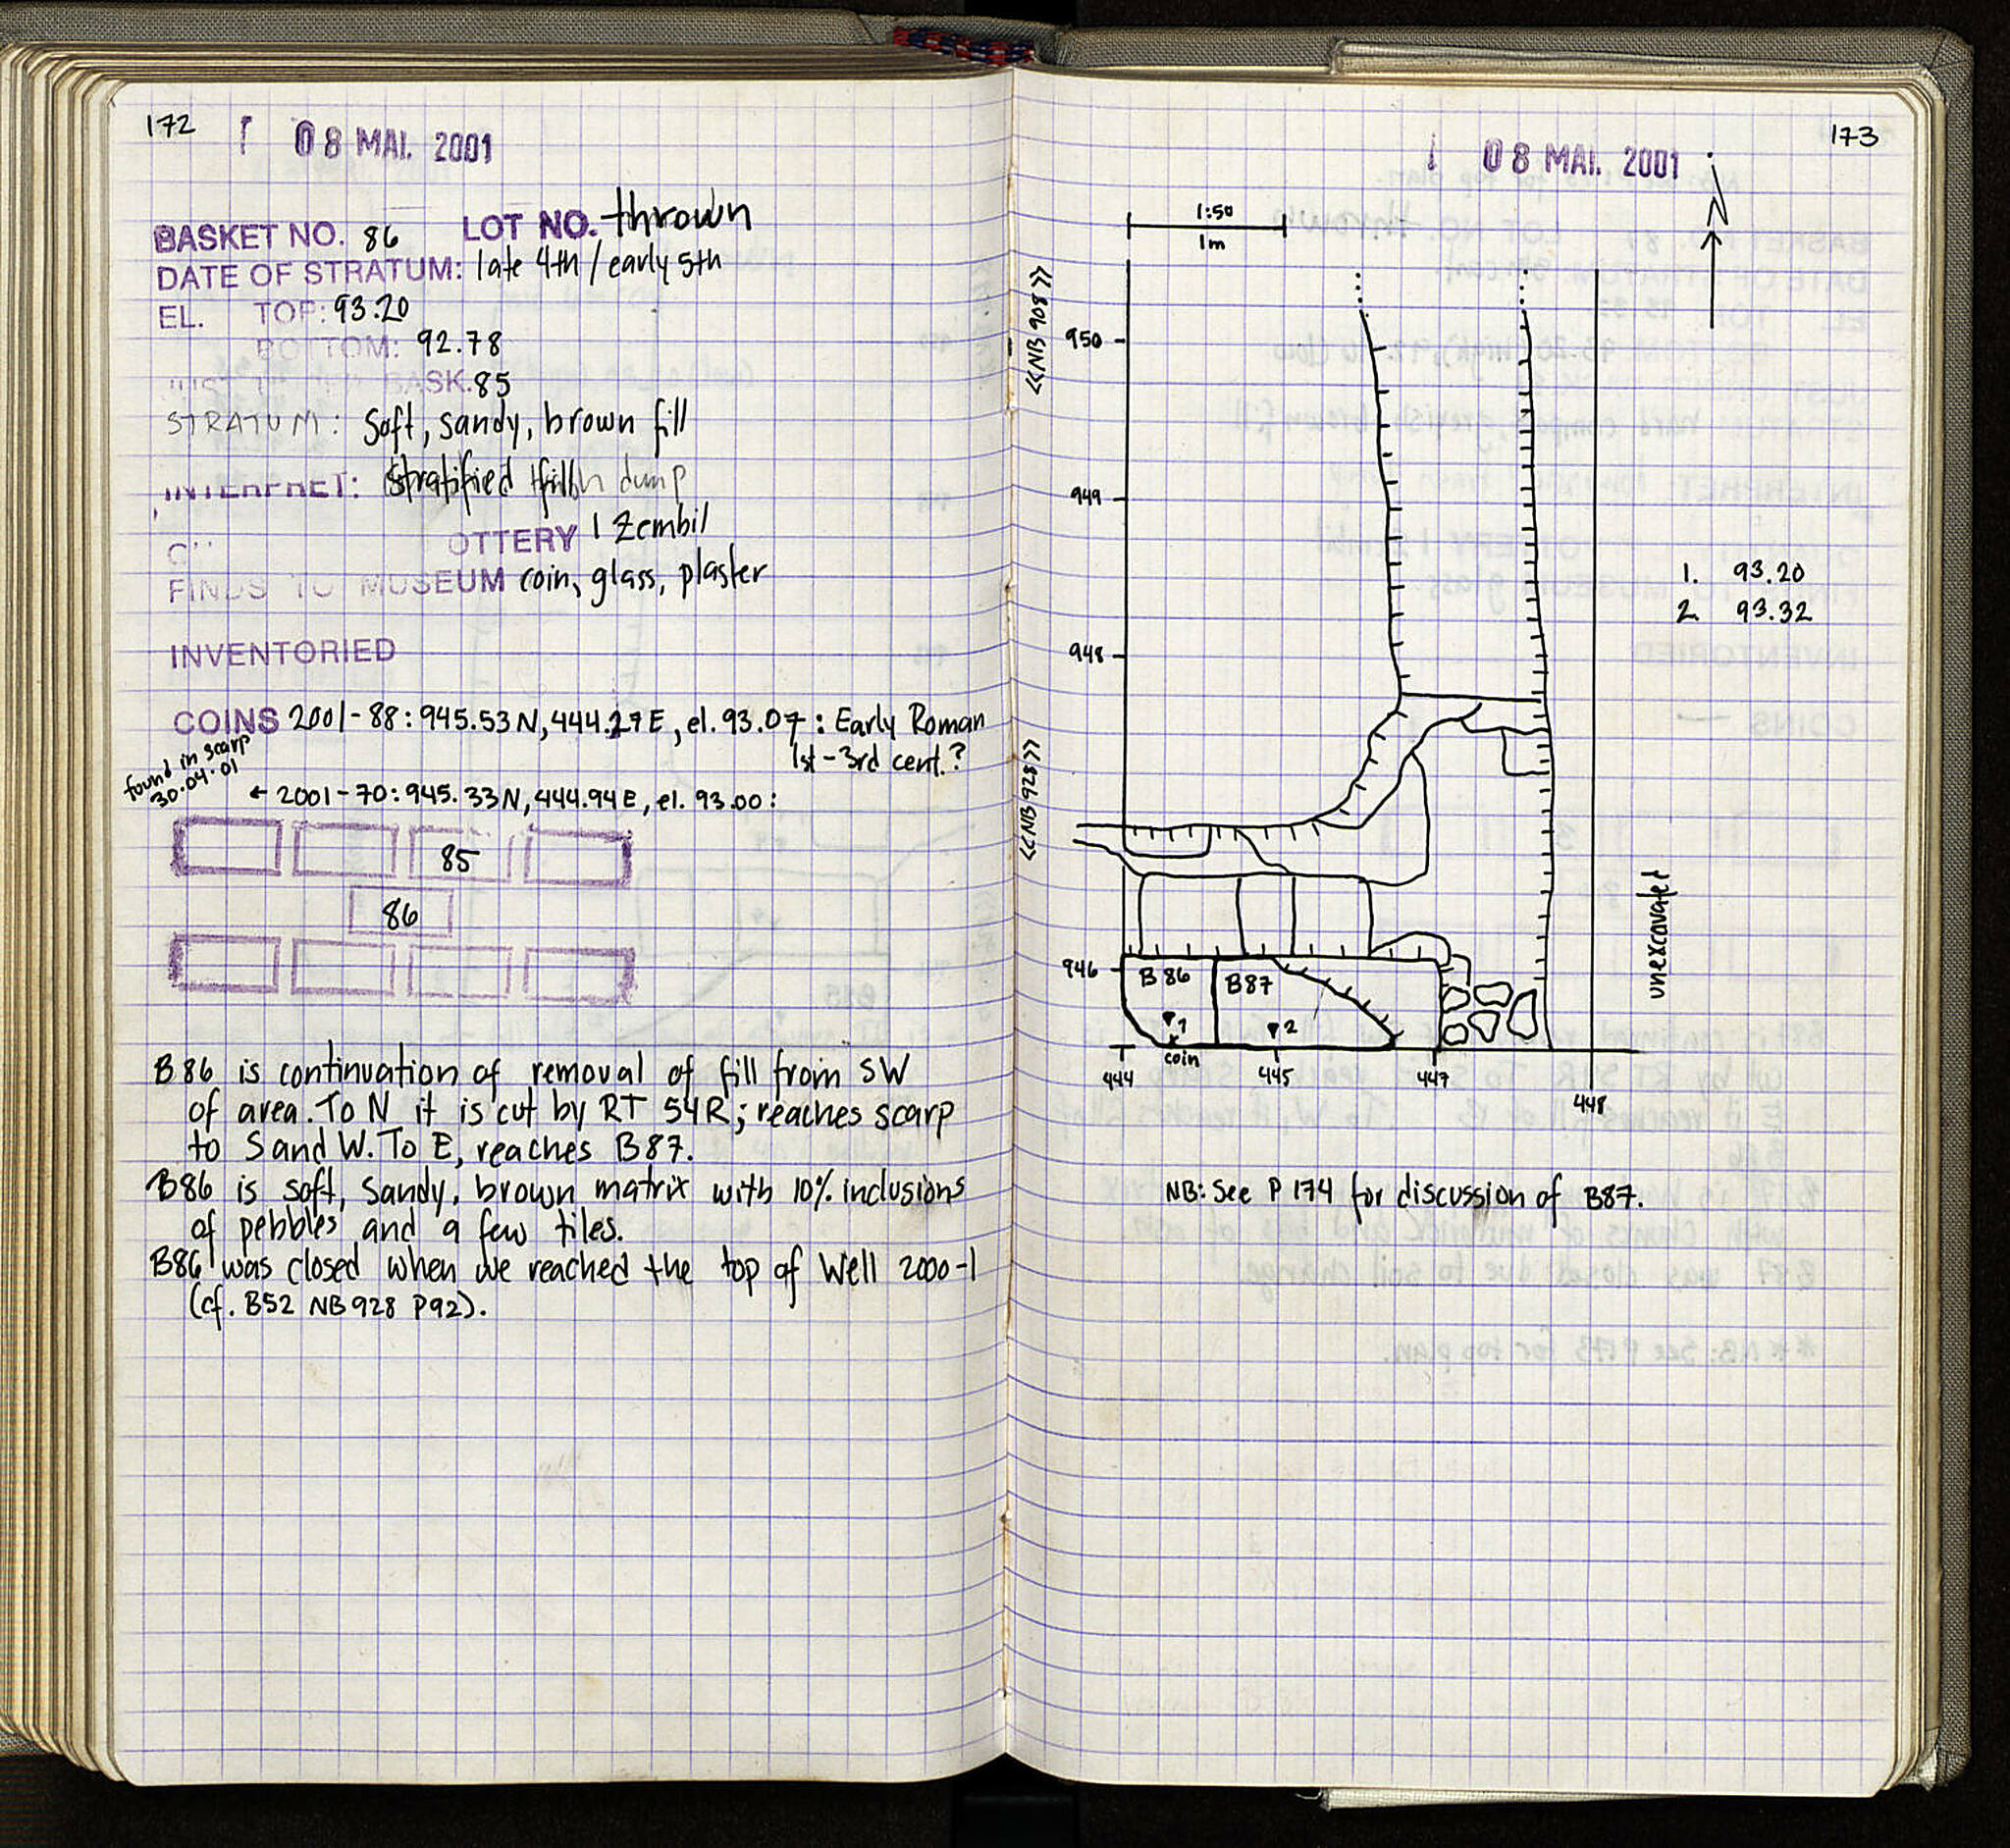 172
08 MAI. 2001
BASKET NO. 86 LOT NO. thrown
DATE OF STRATUM: late 4th / early 5th
EL. TOP: 93.20
BOTTOM: 92.78
BASK. 85
STRATUM: Soft, sandy, brown fill
INTERPRET: stratified fill dump
OTTERY 1 Zembil
FINDS TO MUSEUM coin, glass, plaster
INVENTORIED
COINS 2001-88: 945.53N, 444.27E, el. 93.07: Early Roman
1st - 3rd cent.?
found in scarp
30.04.01
← 2001-70: 945.33N, 444.94E, el. 93.00:
85
86
B86 is continuation of removal of fill from SW
of area. To N it is cut by RT 54R; reaches scarp
to S and W. To E, reaches B87.
B86 is soft, sandy, brown matrix with 10% inclusions
of pebbles and a few tiles.
B86 was closed when we reached the top of Well 2000-1
(cf. B52 NB928 P92).
173
08 MAI. 2001
N
1:50
1m
<<NB 908>>
950
949
1. 93.20
2. 93.32
948
<<NB 928>>
unexcavated
946
B86
B87
1
2
coin
444
445
447
448
NB: See P 174 for discussion of B87.